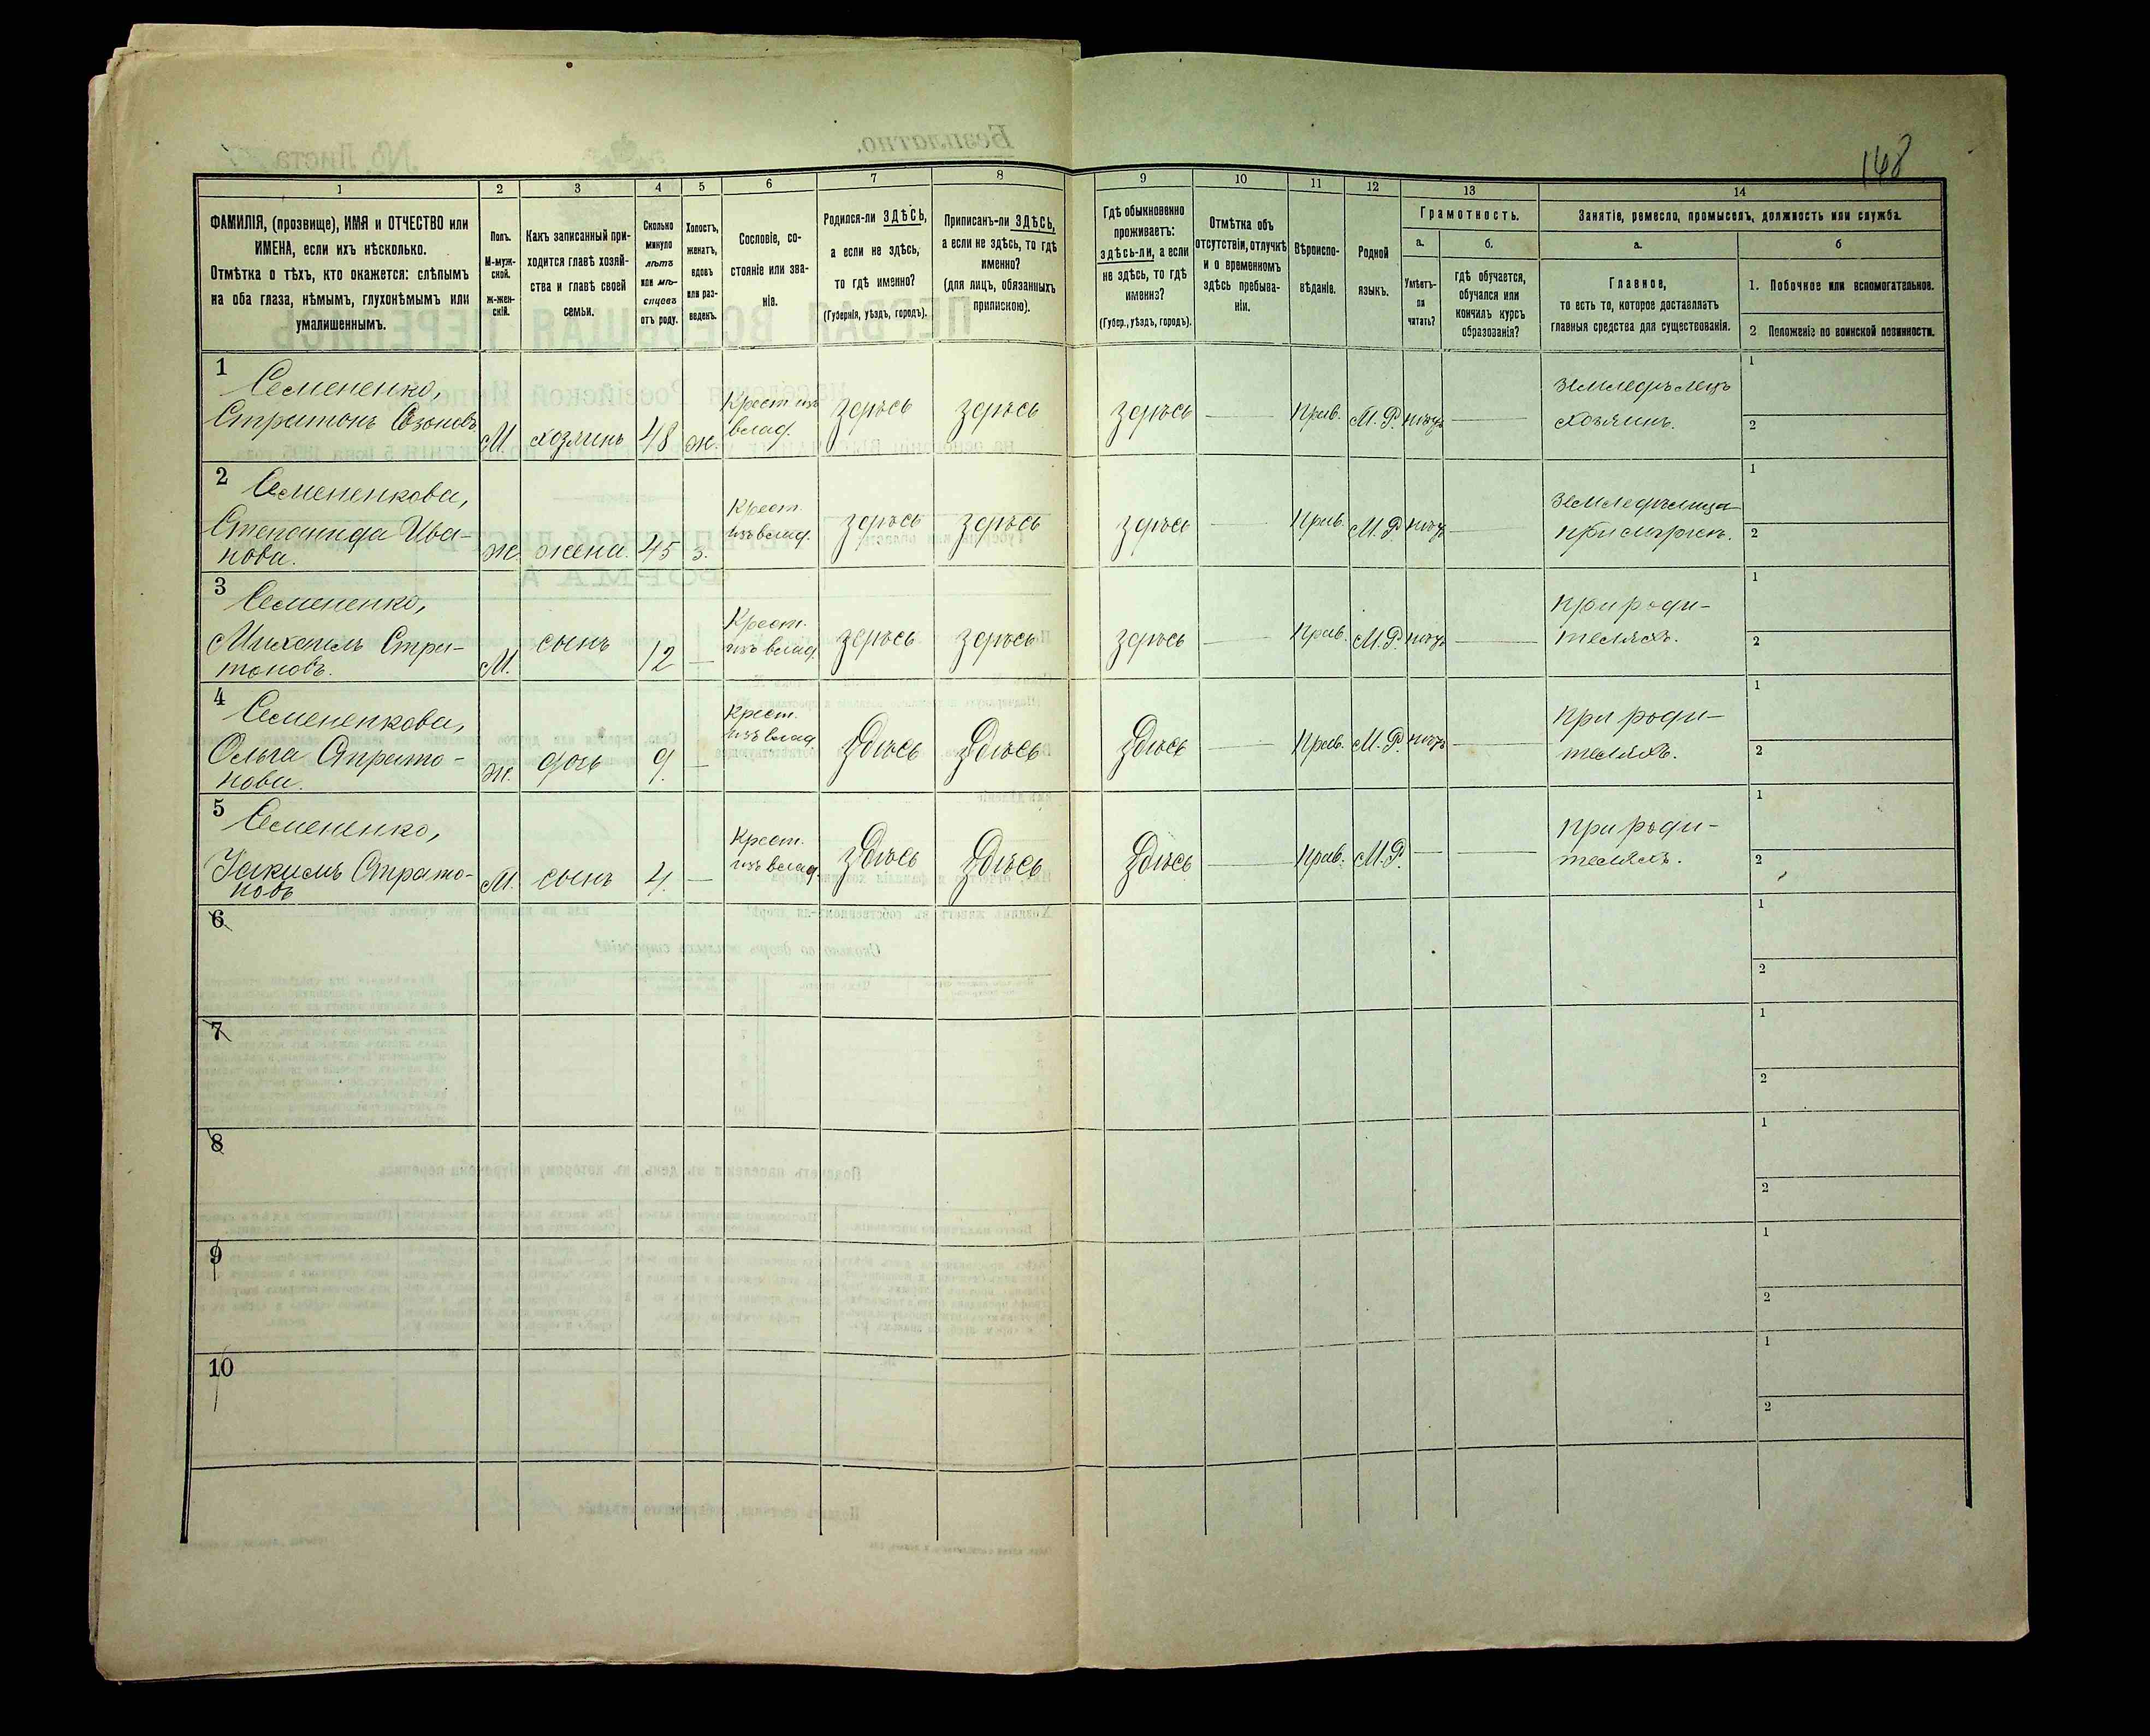 148
1
2
3
4
5
6
7
8
9
10
11
12
13
14
ФАМИЛІЯ, (прозвище), ИМЯ и ОТЧЕСТВО или
ИМЕНА, если ихъ нѣсколько.
Отмѣтка о тѣхъ, кто окажется: слѣпымъ
на оба глаза, нѣмымъ, глухонѣмымъ или
умалишеннымъ.
Полъ.
М-муж-
ской.
ж-жен-
скій.
Какъ записанный при-
ходится главѣ хозяй-
ства и главѣ своей
семьи.
Сколько
минуло
лѣтъ
или мѣ-
сяцевъ
отъ роду.
Холостъ,
женатъ,
вдовъ
или раз-
веденъ.
Сословіе, со-
стояніе или зва-
ніе.
Родился-ли ЗДѢСЬ,
а если не здѣсь,
то гдѣ именно?
(Губернія, уѣздъ, городъ).
Приписанъ-ли ЗДѢСЬ,
а если не здѣсь, то гдѣ
именно?
(для лицъ, обязанныхъ
припискою).
Гдѣ обыкновенно
проживаетъ:
здѣсь-ли, а если
не здѣсь, то гдѣ
именно?
(Губер., уѣздъ, городъ).
Отмѣтка объ
отсутствіи, отлучкѣ
и о временномъ
здѣсь пребыва-
ніи.
Вѣроиспо-
вѣданіе.
Родной
языкъ.
Грамотность.
а.
Умѣетъ-
ли
читать?
б.
гдѣ обучается,
обучался или
кончилъ курсъ
образованія?
Занятіе, ремесло, промыселъ, должность или служба.
а.
Главное,
то есть то, которое доставляетъ
главныя средства для существованія.
б
1. Побочное или вспомогательное.
2 Положеніе по воинской повинности.
1
Семененко,
Стратонъ Созоновъ
М.
хозяинъ
48
ж.
Крест. изъ
влад.
здѣсь
здѣсь
здѣсь
Прав.
М. Р.
нѣтъ
земледѣлецъ
хозяинъ.
1
2
2
Семененкова,
Степанида Ива-
нова.
ж.
жена.
45
з.
Крест.
изъ влад.
здѣсь
здѣсь
здѣсь
Прав.
М. Р.
нѣтъ
земледѣлица
1
2
3
Семененко,
Михаилъ Стра-
тоновъ.
М.
сынъ
12
Крест.
изъ влад.
здѣсь
здѣсь
здѣсь
Прав.
М. Р.
нѣтъ
при роди-
теляхъ.
1
2
4
Семененкова,
Ольга Страто-
нова.
ж.
дочь
9.
Крест.
изъ влад.
Здѣсь
Здѣсь
Здѣсь
Прав.
М. Р.
нѣтъ
при роди-
теляхъ.
1
2
5
Семененко,
Іакимъ Страто-
новъ
М.
сынъ
4.
Крест.
изъ влад.
Здѣсь
Здѣсь
Здѣсь
Прав.
М. Р.
при роди-
теляхъ.
1
2
6
1
2
7
1
2
8
1
2
9
1
2
10
1
2